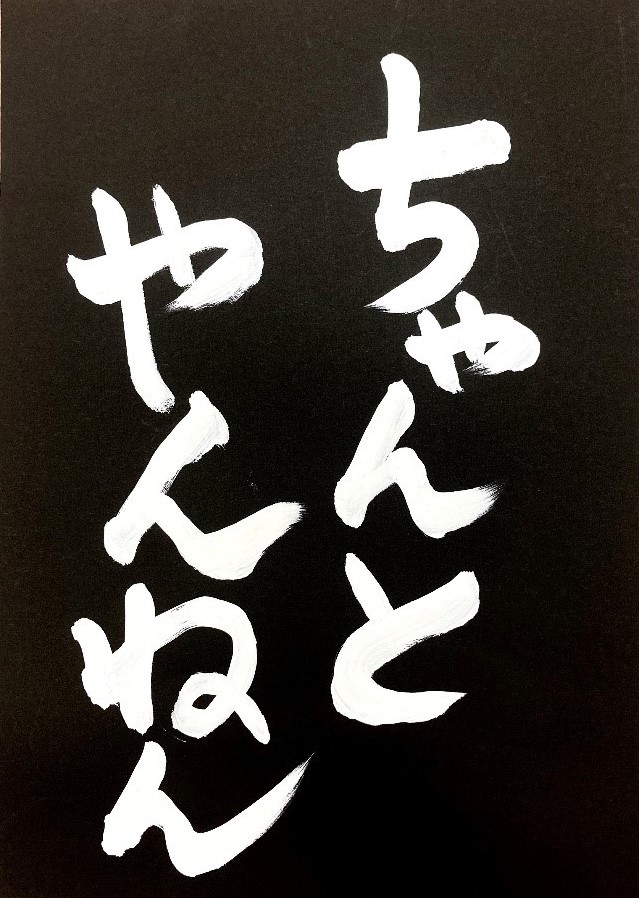 ちゃんと
やんねん